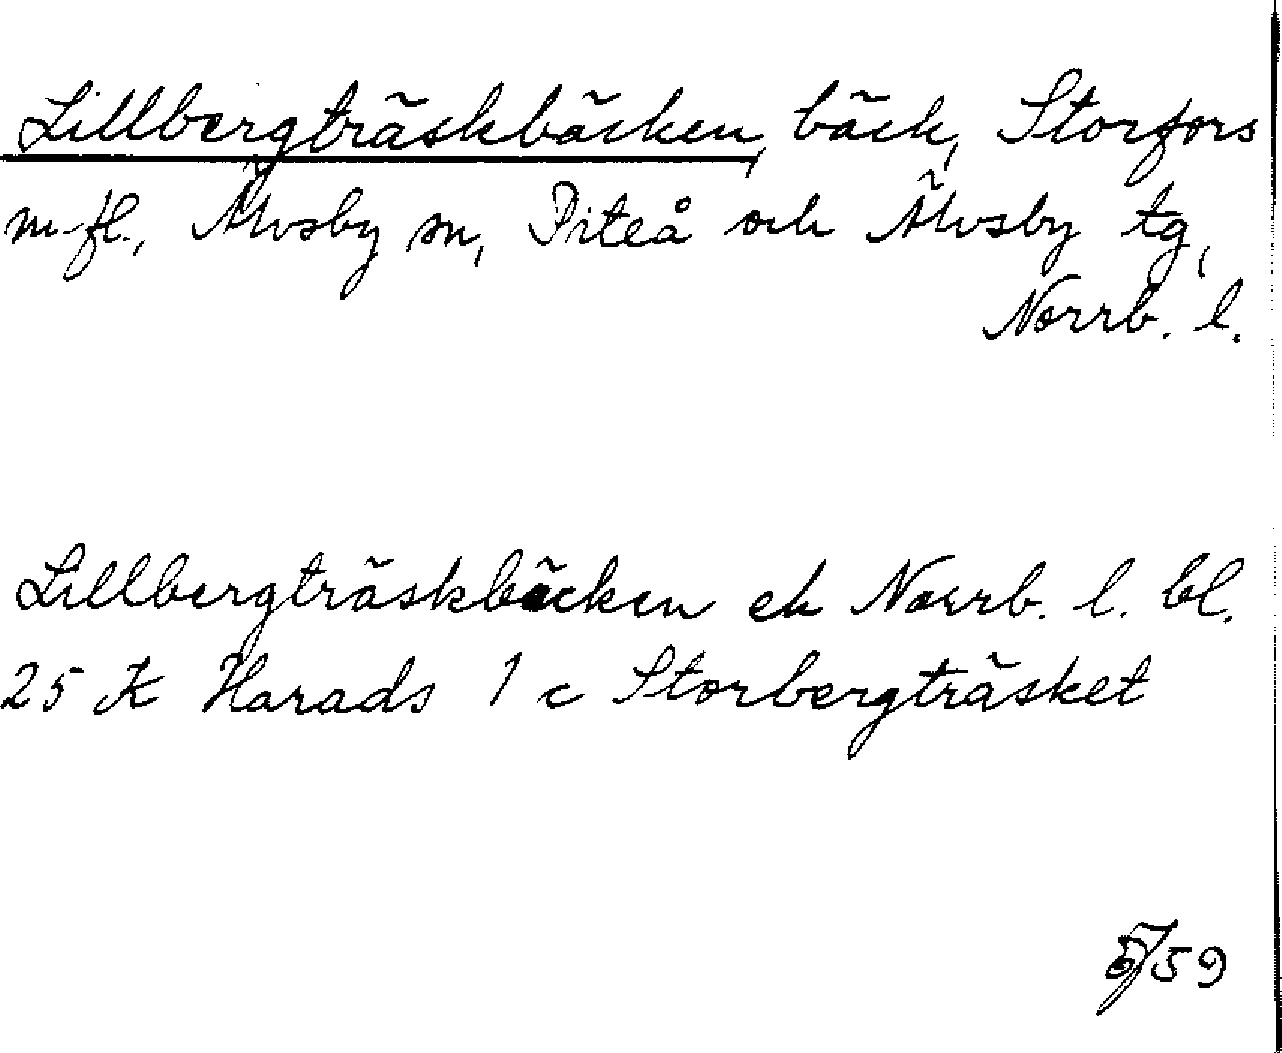 Lillbergträskbäcken, bäck, Storfors
m.fl., Älvsby sn, Piteå och Älvsby tg,
Norrb. l.
Lillbergträskbäcken ek Norrb. l. bl.
25 K Harads 1 c Storbergträsket
/59